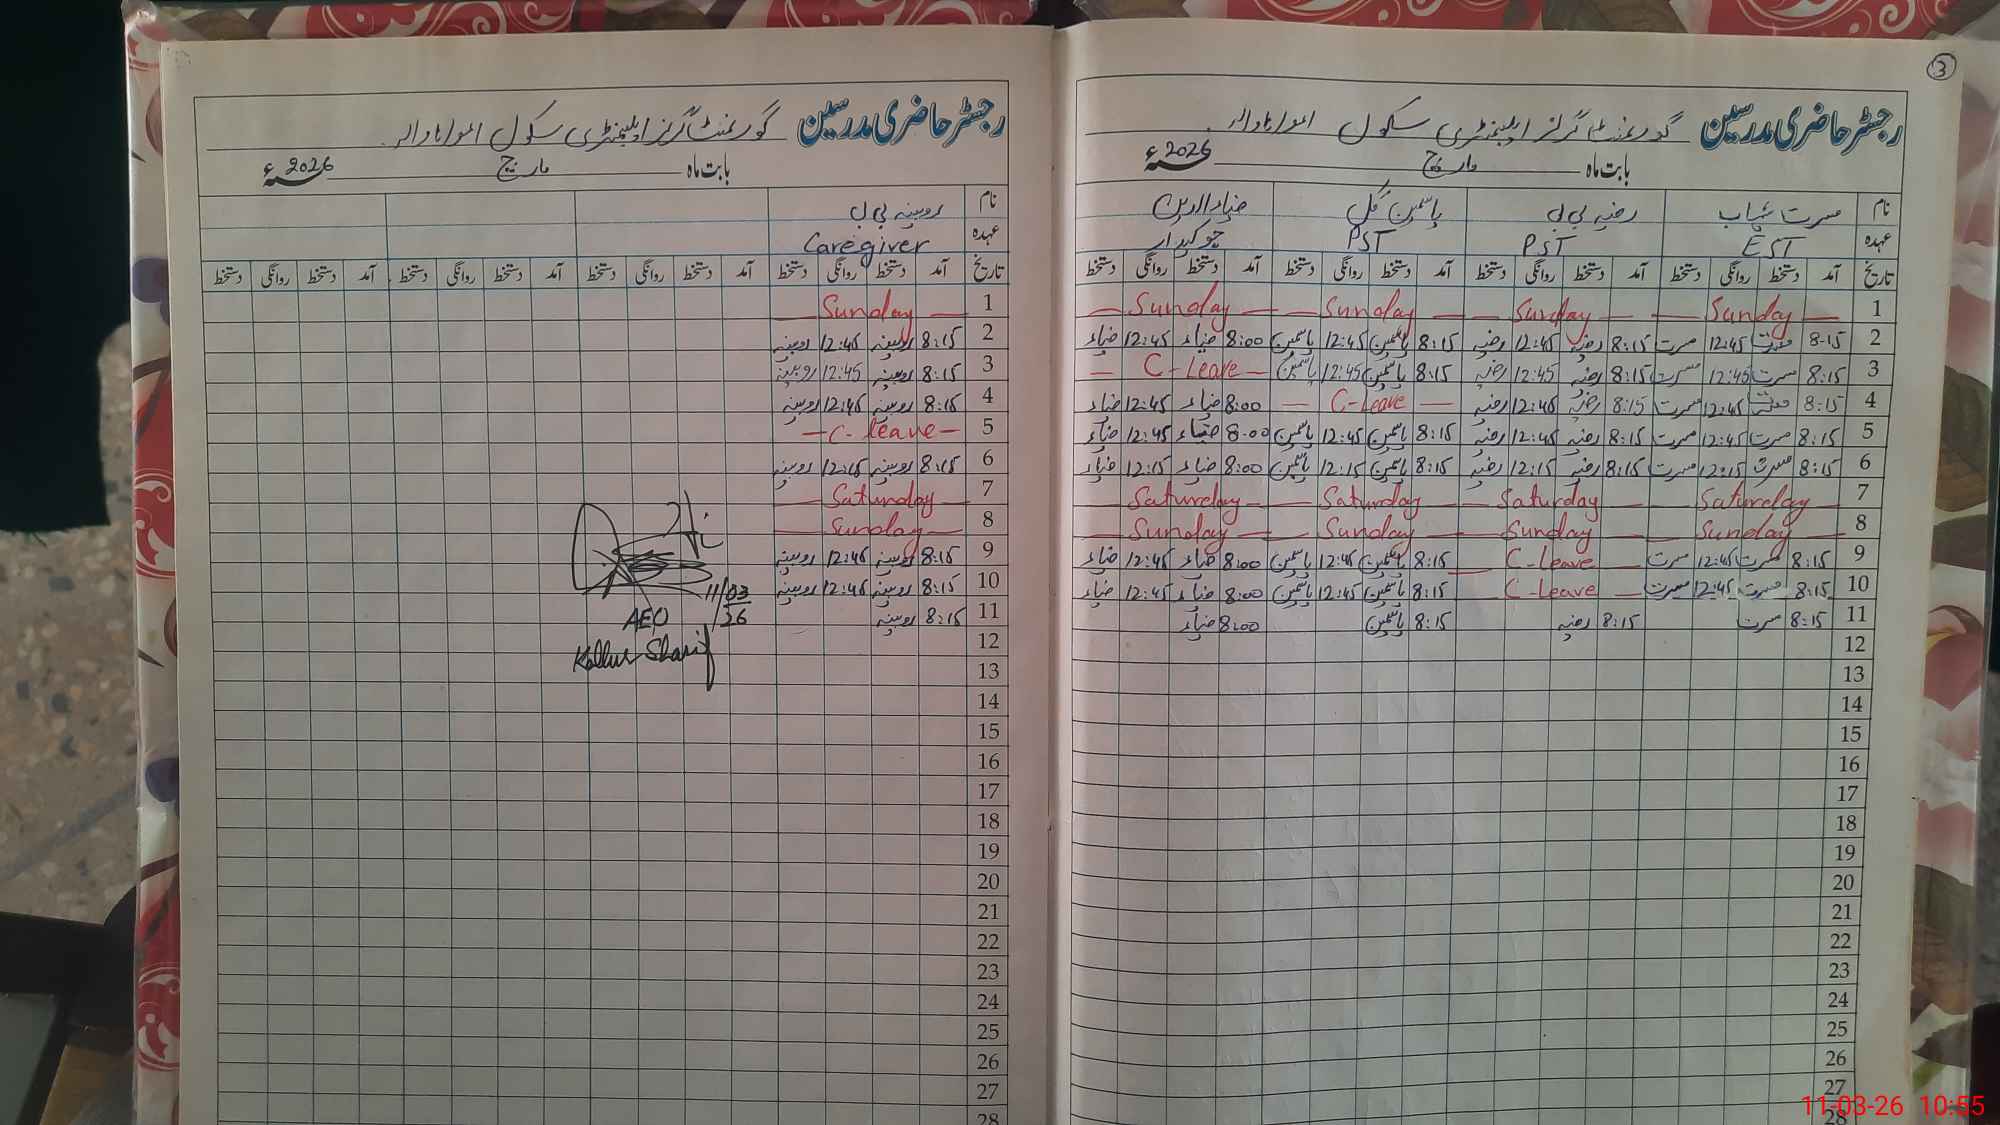 رجسٹر حاضری مدرسین گورنمنٹ گرلز ایلیمنٹری سکول
بابت ماہ مارچ 2026ء
نام مسرت شہاب رضیہ بی بی یاسمین گل ضیاء الدین
عہدہ EST PST PST چوکیدار
تاریخ آمد دستخط روانگی دستخط آمد دستخط روانگی دستخط آمد دستخط روانگی دستخط آمد دستخط روانگی دستخط
1 Sunday Sunday Sunday Sunday
2 8-15 مسرت 12:45 مسرت 8:15 رضیہ 12:45 رضیہ 8:15 یاسمین 12:45 یاسمین 8:00 ضیاء 12:45 ضیاء
3 8:15 مسرت 12:45 مسرت 8:15 رضیہ 12:45 رضیہ 8:15 یاسمین 12:45 یاسمین C-Leave
4 8:15 مسرت 12:45 مسرت 8:15 رضیہ 12:45 رضیہ C-Leave 8:00 ضیاء 12:45 ضیاء
5 8:15 مسرت 12:45 مسرت 8:15 رضیہ 12:45 رضیہ 8:15 یاسمین 12:45 یاسمین 8:00 ضیاء 12:45 ضیاء
6 8:15 مسرت 12:15 مسرت 8:15 رضیہ 12:15 رضیہ 8:15 یاسمین 12:15 یاسمین 8:00 ضیاء 12:15 ضیاء
7 Saturday Saturday Saturday Saturday
8 Sunday Sunday Sunday Sunday
9 8:15 مسرت 12:45 مسرت C-Leave 8:15 یاسمین 12:45 یاسمین 8:00 ضیاء 12:45 ضیاء
10 8:15 مسرت 12:45 مسرت C-Leave 8:15 یاسمین 12:45 یاسمین 8:00 ضیاء 12:45 ضیاء
11 8:15 مسرت 8:15 رضیہ 8:15 یاسمین 8:00 ضیاء
12
13
14
15
16
17
18
19
20
21
22
23
24
25
26
27
28
3
رجسٹر حاضری مدرسین گورنمنٹ گرلز ایلیمنٹری سکول
بابت ماہ مارچ 2026ء
نام روبینہ بی بی
عہدہ Caregiver
تاریخ آمد دستخط روانگی دستخط آمد دستخط روانگی دستخط آمد دستخط روانگی دستخط آمد دستخط روانگی دستخط
1 Sunday
2 8:15 روبینہ 12:45 روبینہ
3 8:15 روبینہ 12:45 روبینہ
4 8:15 روبینہ 12:45 روبینہ
5 C-leave
6 8:15 روبینہ 12:15 روبینہ
7 Saturday
8 Sunday
9 8:15 روبینہ 12:45 روبینہ
10 8:15 روبینہ 12:45 روبینہ
11 8:15 روبینہ
12
13
14
15
16
17
18
19
20
21
22
23
24
25
26
27
28
11/03/26
AEO
Kallur Sharif
11-03-26 10:55